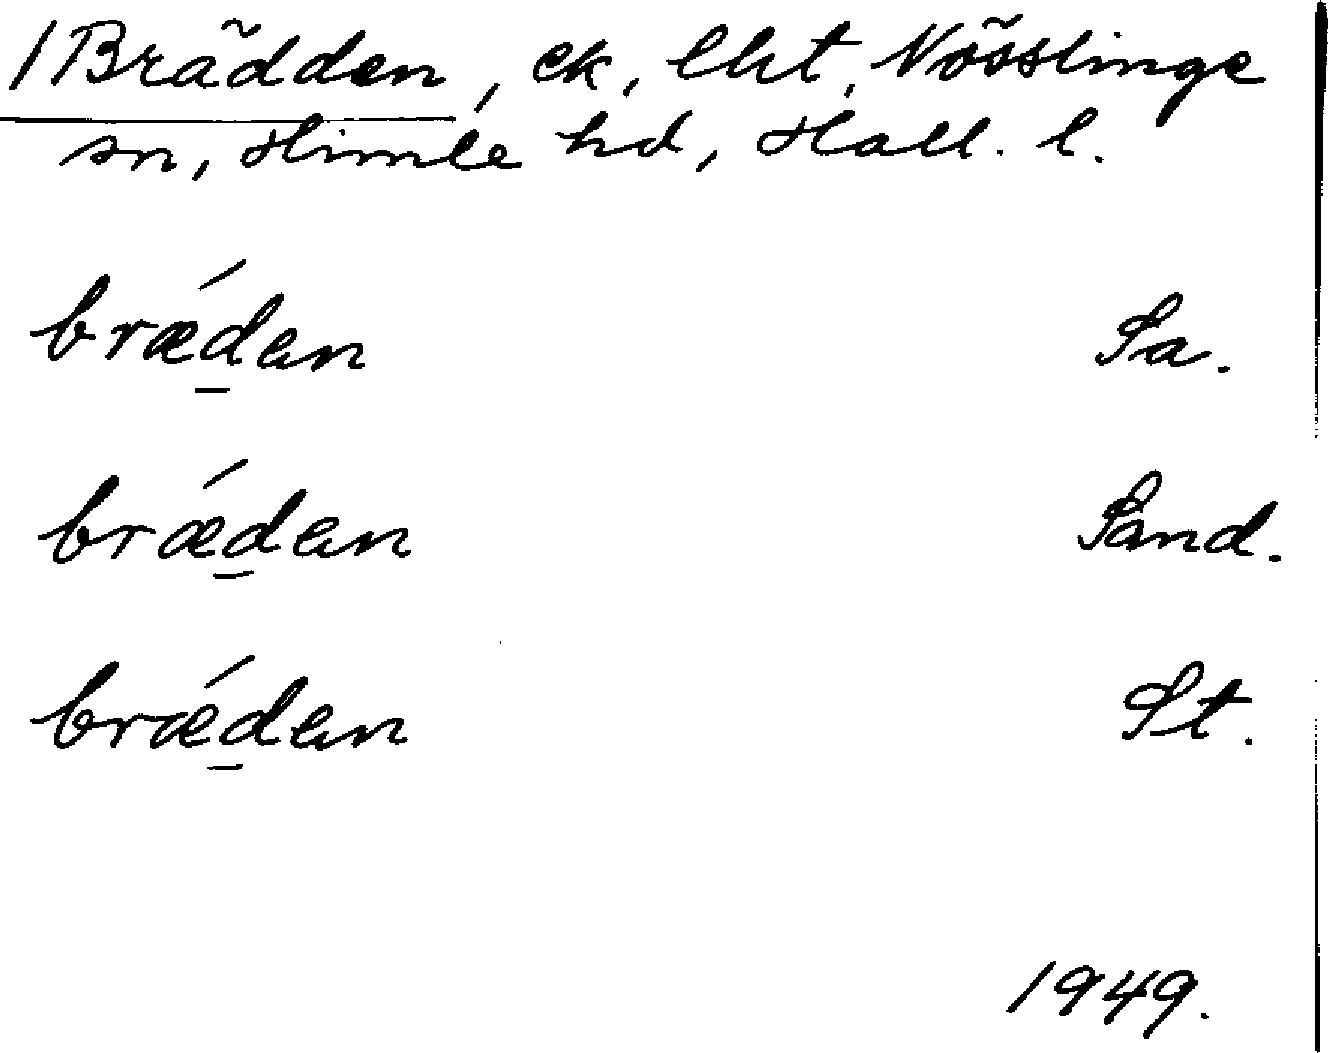 /Brädden, ek, lht, Nösslinge
sn, Himle hd, Hall. l.
bræ´dan Sa.
bræ´dan Sand.
bræ´dan St.
1949.